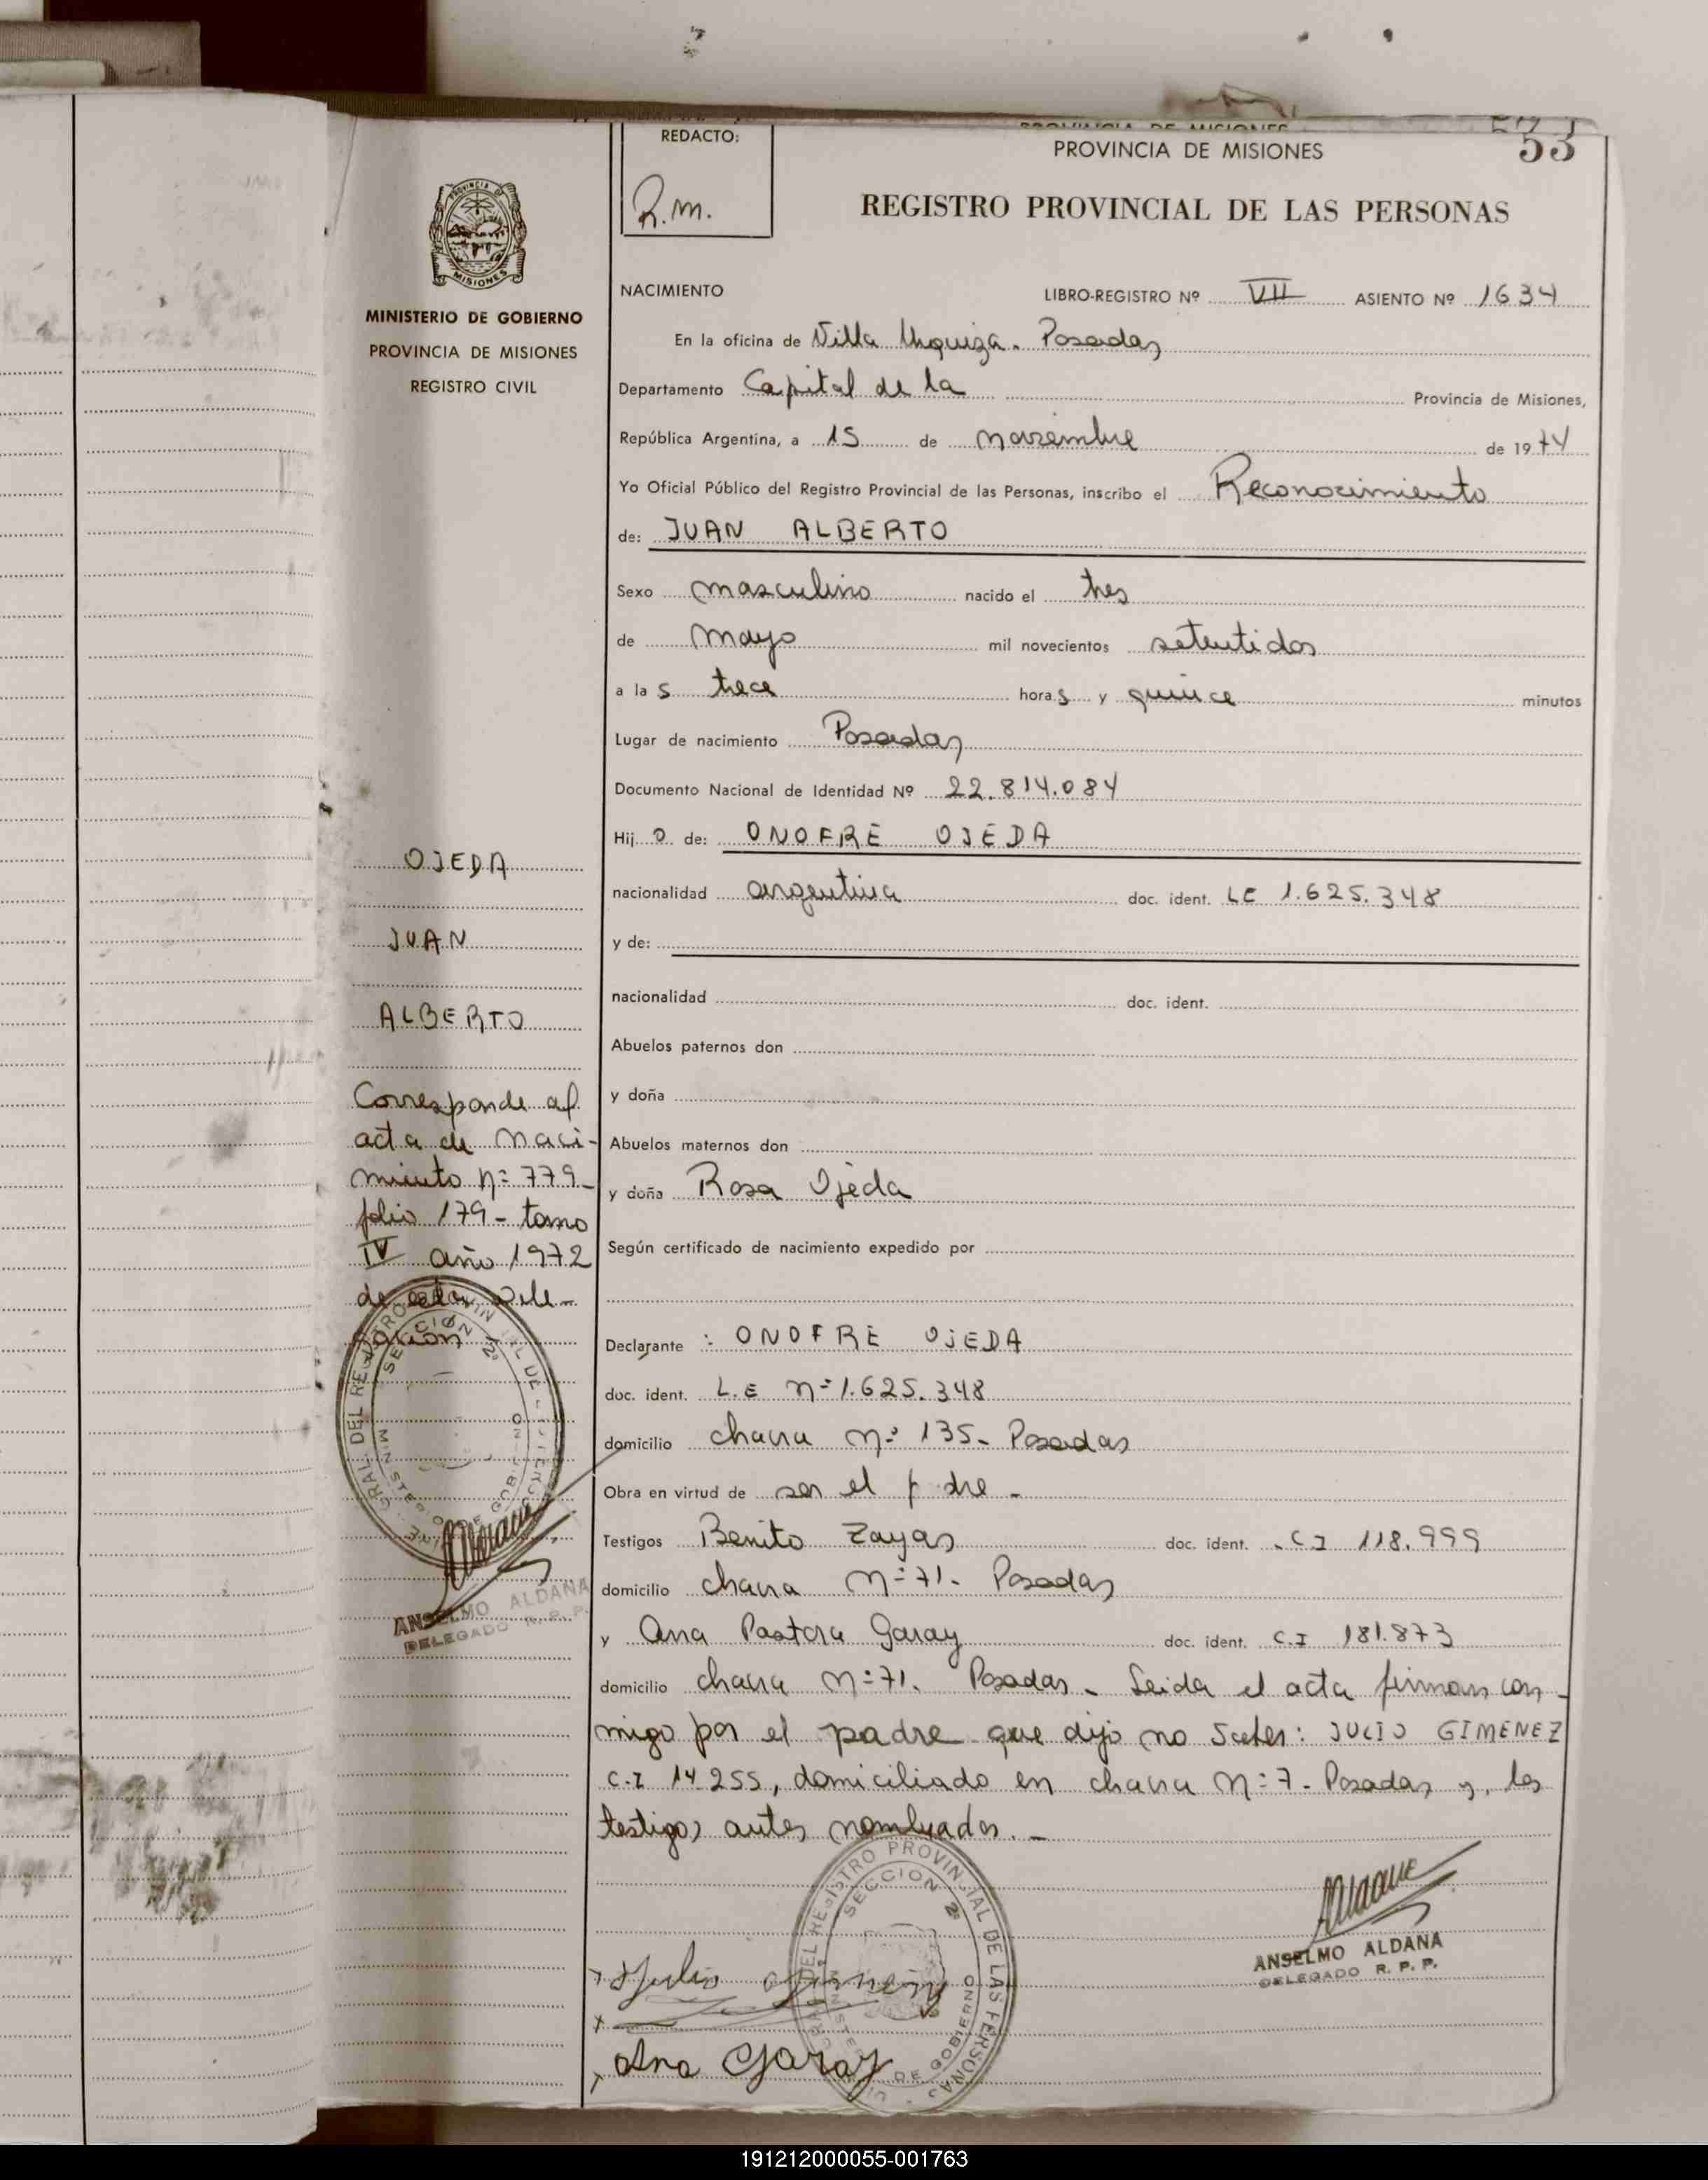 PROVINCIA DE MISIONES
53
REDACTO:
R.m.
PROVINCIA DE MISIONES
REGISTRO PROVINCIAL DE LAS PERSONAS
MISIONES
MINISTERIO DE GOBIERNO
PROVINCIA DE MISIONES
REGISTRO CIVIL
OJEDA
JUAN
ALBERTO
Corresponde al
acta de naci-
miento nº 779-
folio 179 - tomo
IV año 1972
de esta Dele-
gación
SECCION 2º
ANSELMO ALDANA
DELEGADO R. P. P.
NACIMIENTO LIBRO-REGISTRO Nº VII ASIENTO Nº 1634
En la oficina de Villa Urquiza. Posadas
Departamento Capital de la Provincia de Misiones,
República Argentina, a 15 de noviembre de 1974
Yo Oficial Público del Registro Provincial de las Personas, inscribo el Reconocimiento
de: JUAN ALBERTO
Sexo masculino nacido el tres
de mayo mil novecientos setentidos
a la s trece hora s y quince minutos
Lugar de nacimiento Posadas
Documento Nacional de Identidad Nº 22.814.084
Hij o de: ONOFRE OJEDA
nacionalidad argentina doc. ident. LE 1.625.348
y de:
nacionalidad doc. ident.
Abuelos paternos don
y doña
Abuelos maternos don
y doña Rosa Ojeda
Según certificado de nacimiento expedido por
Declarante : ONOFRE OJEDA
doc. ident. L.E nº 1.625.348
domicilio chacra nº 135- Posadas
Obra en virtud de ser el p dre -
Testigos Benito Zayas doc. ident. C.I 118.999
domicilio chacra nº 71- Posadas
y Ana Pastora Garay doc. ident. C.I 181.873
domicilio chacra nº 71. Posadas - Leida el acta firman con-
migo por el padre que dijo no saber: JULIO GIMENEZ
C.I 14255, domiciliado en chacra nº 7- Posadas y, los
testigos antes nombrados. -
REGISTRO PROVINCIAL DE LAS PERSONAS
SECCION 2º
ANSELMO ALDANA
DELEGADO R. P. P.
Julio Gimenez
Ana Garay
191212000055-001763